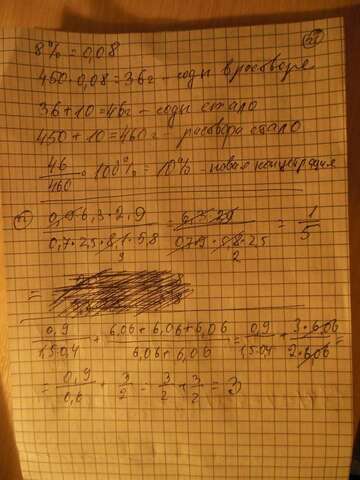 8% = 0,08
450·0,08=36г – соды в росворе
36+10=46г – соды стало
450+10=460г – росвора стало
46/460 · 100% = 10% – новая концентрация
6,3·2,9 / 0,7·25·8,1·5,8 = 1/5
=
0,9/1,5·0,4 + 6,06+6,06+6,06/6,06+6,06 = 0,9/1,5·0,4 + 3·6,06/2·6,06 =
= 0,9/0,6 + 3/2 = 3/2 + 3/2 = 3